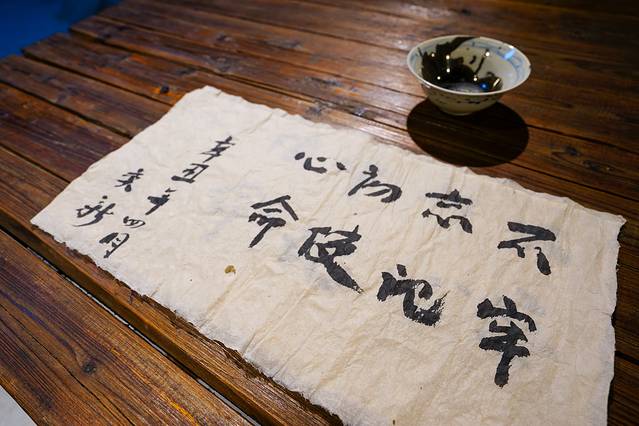 不忘初心
牢记使命
辛丑年四月
新